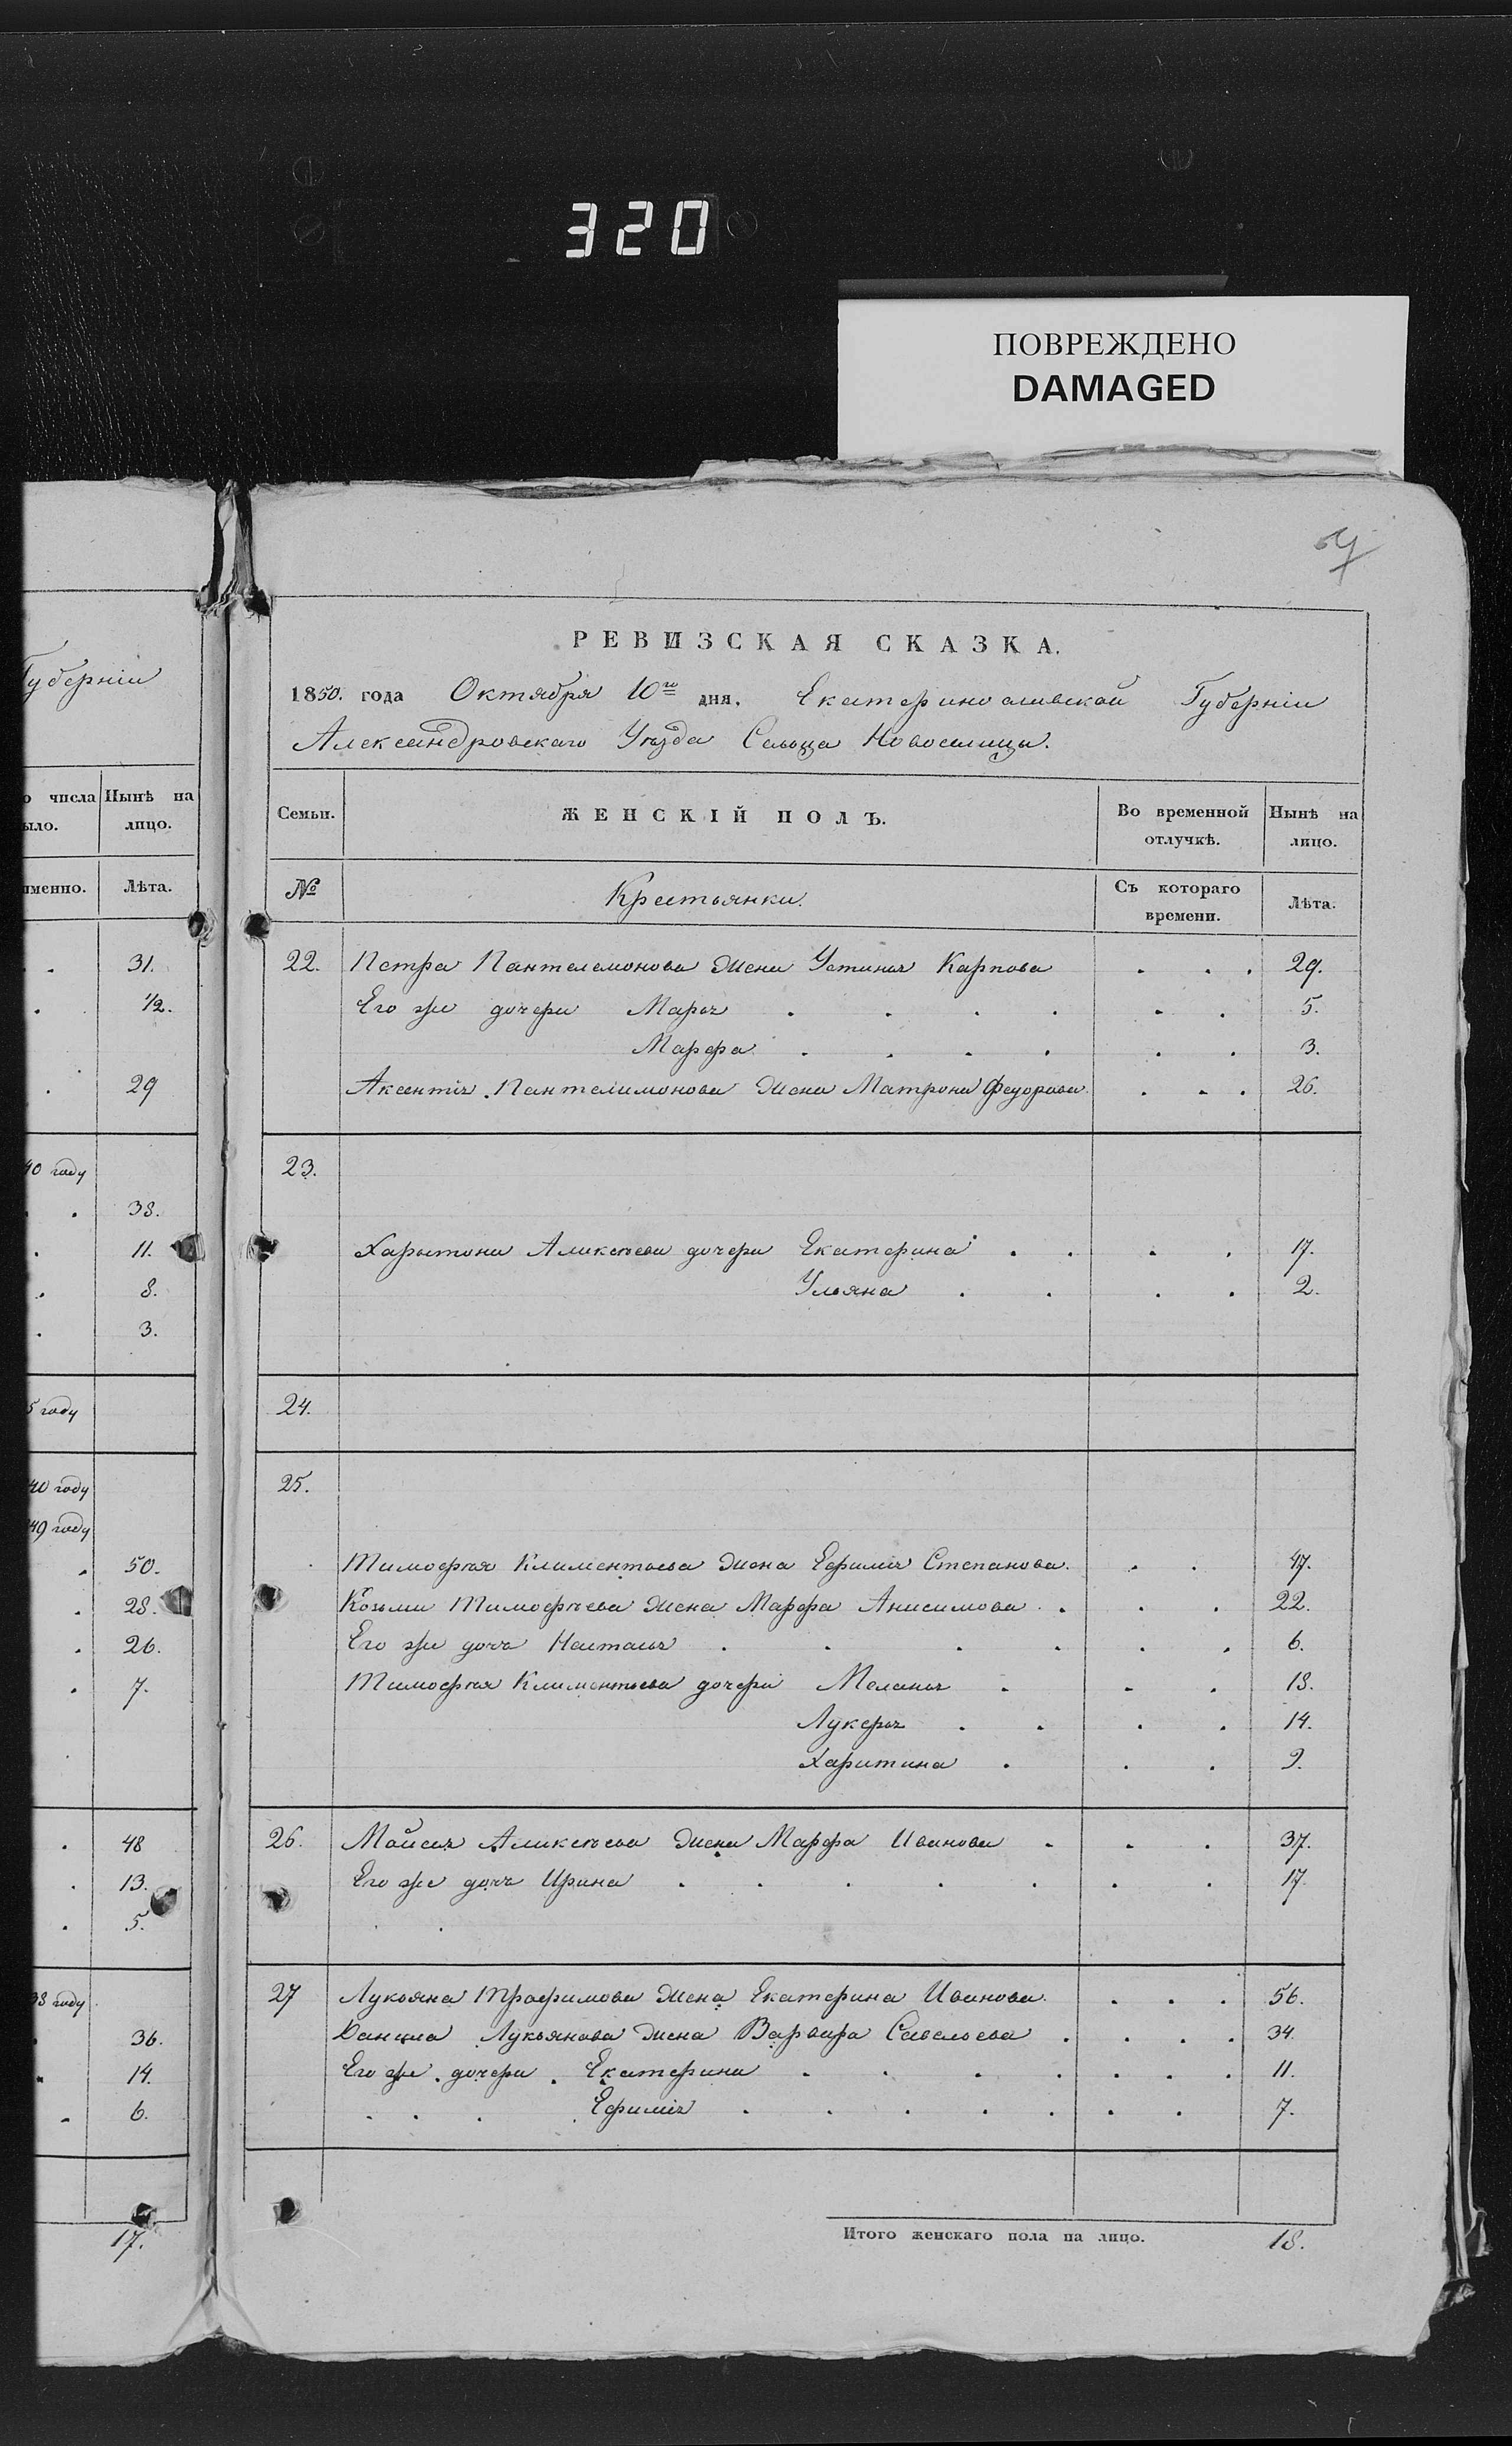 320
ПОВРЕЖДЕНО
DAMAGED
Губерніи
числа Нынѣ на
ыло. лицо.
именно. Лѣта.
31.
1/2.
29
40 году
38.
11.
8.
3.
5 году
40 году
49 году
50.
28.
26.
7.
48
13.
5.
38 году
36.
14.
6.
17.
РЕВИЗСКАЯ СКАЗКА.
1850. года Октября 10го дня. Екатеринославской Губерніи
Александровскаго Уѣзда Сельца Новоселицы.
Семьи. ЖЕНСКІЙ ПОЛЪ. Во временной Нынѣ на
отлучкѣ. лицо.
№ Крестьянки. Съ котораго Лѣта.
времени.
22. Петра Пантелемонова жена Устинья Карпова 29.
Его же дочери Марья 5.
Марфа 3.
Аксентія Пантелимонова жена Матрона Федорова 26.
23.
Харитона Аликсѣева дочери Екатерина 17.
Ульяна 2.
24.
25.
Тимофѣя Климентьева жена Ефимія Степанова. 47.
Козьмы Тимофѣева жена Марфа Анисимова 22.
Его же дочь Наталья 6.
Тимофѣя Климентьева дочери Меланья 18.
Лукерья 14.
Харитина 9.
26. Мойсея Аликсѣева жена Марфа Иванова 37.
Его же дочь Ирина 17.
27 Лукьяна Трофимова жена Екатерина Иванова 56.
Данила Лукьянова жена Варвара Савельева 34.
Его же дочери Екатерина 11.
Ефимія 7.
Итого женскаго пола на лицо. 18.